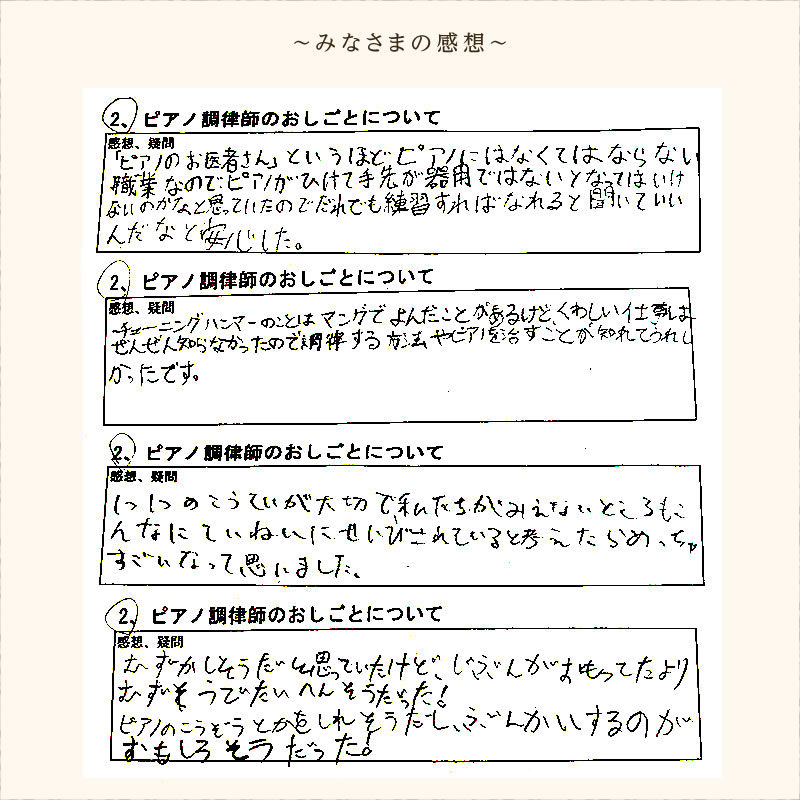 ～みなさまの感想～
2、ピアノ調律師のおしごとについて
感想、疑問
「ピアノのお医者さん」というほどピアノにはなくてはならない
職業なのでピアノがひけて手先が器用ではないとなってはいけ
ないのかなと思っていたのでだれでも練習すればなれると聞いていい
んだなと安心した。
2、ピアノ調律師のおしごとについて
感想、疑問
チューニングハンマーのことはマンガでよんだことがあるけど、くわしい仕事は
ぜんぜん知らなかったので調律する方法やピアノを治すことが知れてうれし
かったです。
2、ピアノ調律師のおしごとについて
感想、疑問
1つ1つのこうていが大切で私たちがみえないところもこ
んなにていねいにせいびされていると考えたらめっちゃ
すごいなって思いました。
2、ピアノ調律師のおしごとについて
感想、疑問
むずかしそうだと思っていたけど、じぶんがおもってたより
むずそうでたいへんそうだった!
ピアノのこうぞうとかをしれそうだし、ぶんかいするのが
おもしろそうだった。